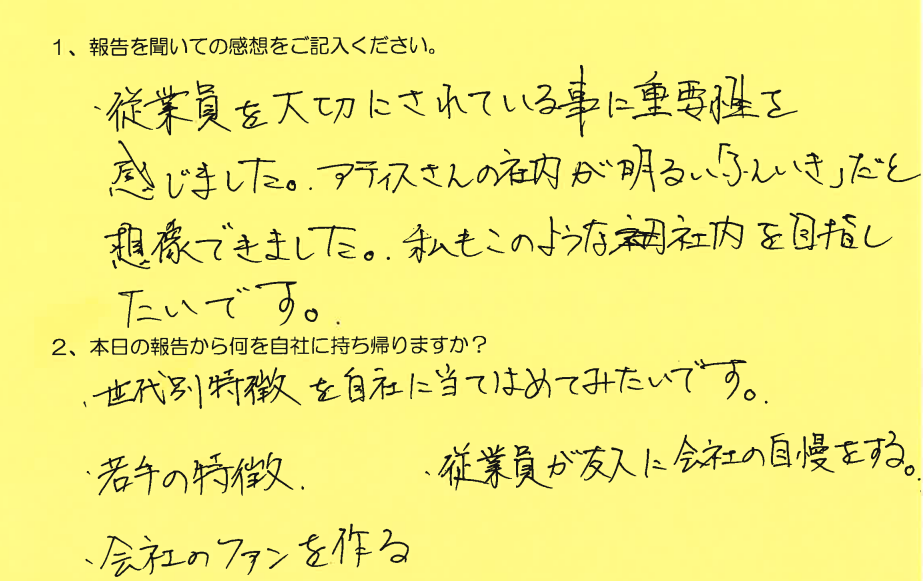 1、報告を聞いての感想をご記入ください。
・従業員を大切にされている事に重要性を
感じました。アティスさんの社内が明るい「ふんいき」だと
想像できました。私もこのような社内を目指し
たいです。
2、本日の報告から何を自社に持ち帰りますか？
・世代別特徴を自社に当てはめてみたいです。
・若手の特徴. ・従業員が友人に会社の自慢をする。
・会社のファンを作る